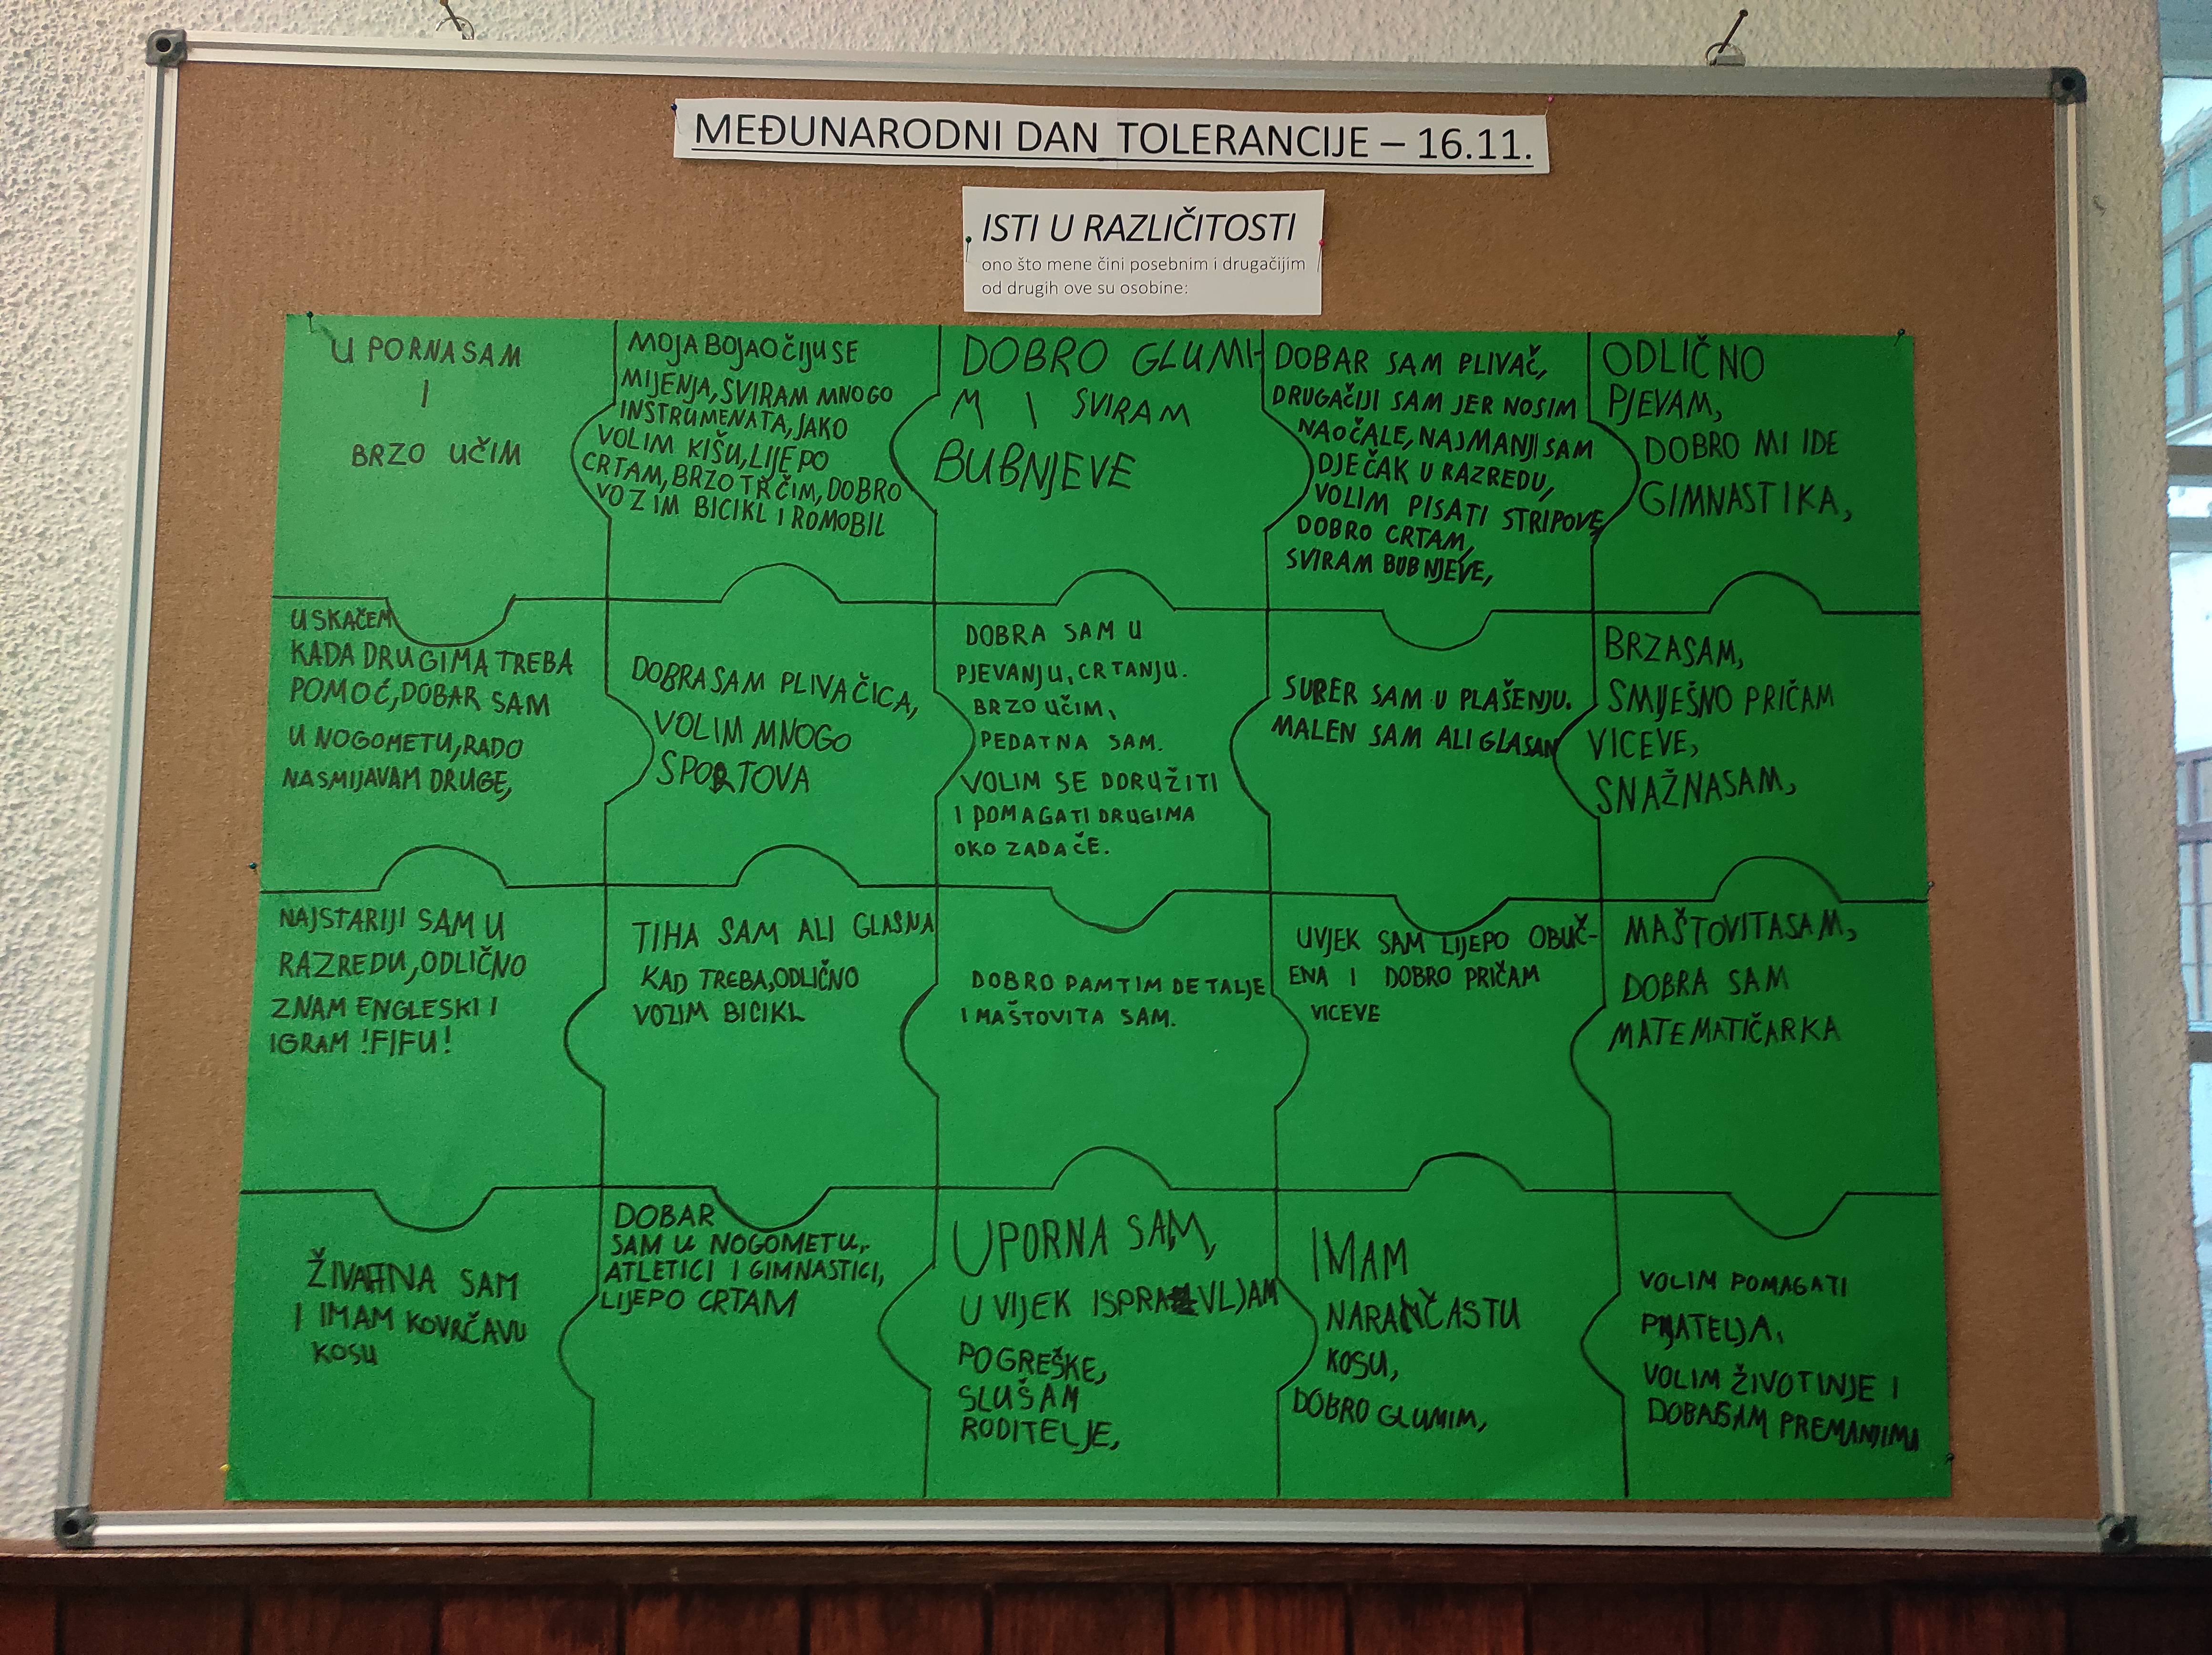 MEĐUNARODNI DAN TOLERANCIJE – 16.11.
ISTI U RAZLIČITOSTI
ono što mene čini posebnim i drugačijim
od drugih ove su osobine:
U PORNA SAM
I
BRZO UČIM
MOJA BOJA OČIJU SE
MIJENJA, SVIRAM MNOGO
INSTRUMENATA, JAKO
VOLIM KIŠU, LIJEPO
CRTAM, BRZO TRČIM, DOBRO
VOZIM BICIKL I ROMOBIL
DOBRO GLUMI-
M I SVIRAM
BUBNJEVE
DOBAR SAM PLIVAČ,
DRUGAČIJI SAM JER NOSIM
NAOČALE, NAJMANJI SAM
DJEČAK U RAZREDU,
VOLIM PISATI STRIPOVE,
DOBRO CRTAM,
SVIRAM BUBNJEVE,
ODLIČNO
PJEVAM,
DOBRO MI IDE
GIMNASTIKA,
USKAČEM
KADA DRUGIMA TREBA
POMOĆ, DOBAR SAM
U NOGOMETU, RADO
NASMIJAVAM DRUGE,
DOBRA SAM PLIVAČICA,
VOLIM MNOGO
SPORTOVA
DOBRA SAM U
PJEVANJU, CRTANJU.
BRZO UČIM,
PEDATNA SAM.
VOLIM SE DORUŽITI
I POMAGATI DRUGIMA
OKO ZADAĆE.
SUPER SAM U PLAŠENJU.
MALEN SAM ALI GLASAN
BRZA SAM,
SMIJEŠNO PRIČAM
VICEVE,
SNAŽNA SAM,
NAJSTARIJI SAM U
RAZREDU, ODLIČNO
ZNAM ENGLESKI I
IGRAM !FIFU!
TIHA SAM ALI GLASNA
KAD TREBA, ODLIČNO
VOZIM BICIKL
DOBRO PAMTIM DETALJE
I MAŠTOVITA SAM.
UVJEK SAM LIJEPO OBUČ-
ENA I DOBRO PRIČAM
VICEVE
MAŠTOVITA SAM,
DOBRA SAM
MATEMATIČARKA
SAM
I IMAM KOVRČAVU
KOSU
DOBAR
SAM U NOGOMETU,
ATLETICI I GIMNASTICI,
LIJEPO CRTAM
UPORNA SAM,
UVIJEK ISPRAVLJAM
POGREŠKE,
SLUŠAM
RODITELJE,
IMAM
NARANČASTU
KOSU,
DOBRO GLUMIM,
VOLIM POMAGATI
VOLIM ŽIVOTINJE I
PREMA NJIMA